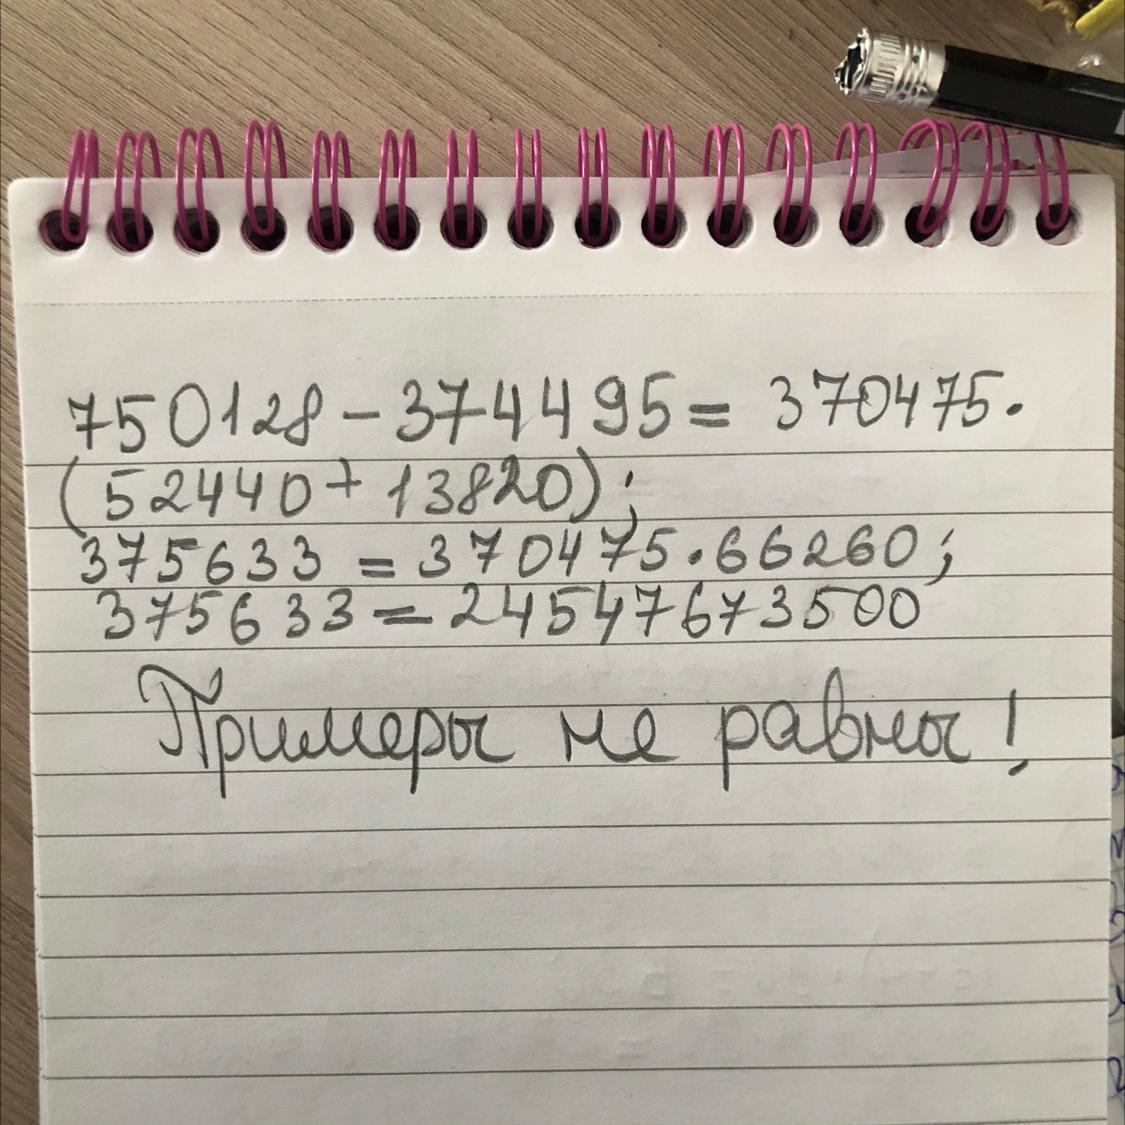 750128 - 374495 = 370475 ·
(52440 + 13820);
375633 = 370475 · 66260;
375633 = 24547673500
Примеры не равны!